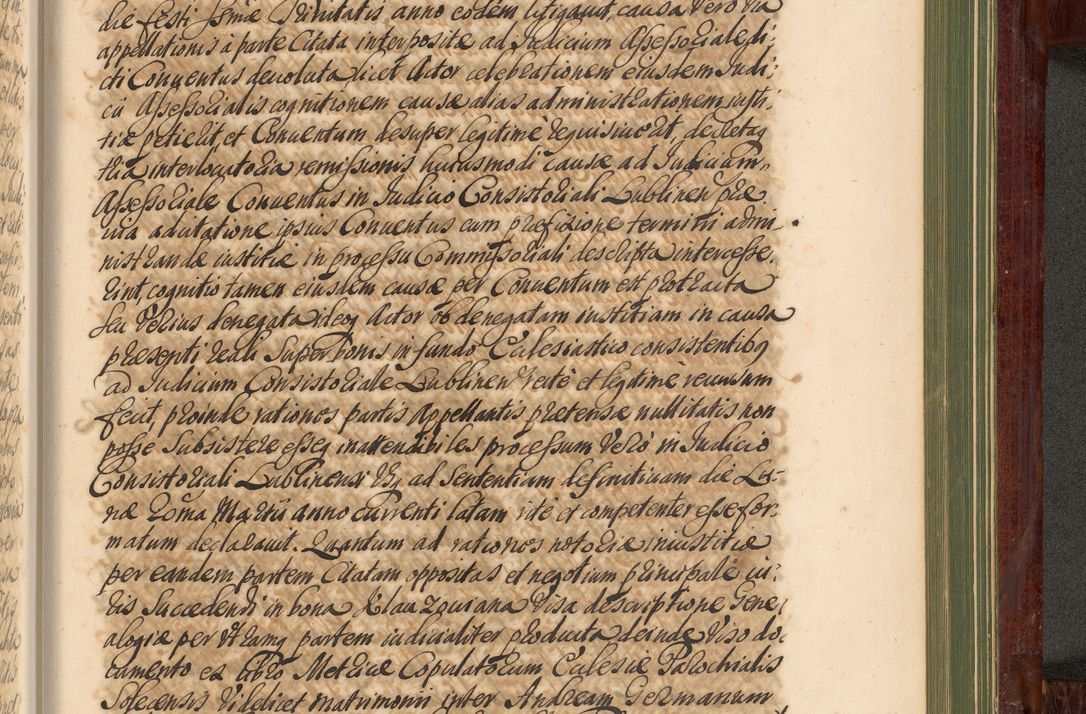 die festi Ssmæ Trinitatis anno eodem litigavit, causa vero via
appellationis à parte Citata interpositæ ad Judicium Assessoriale di,
cti Conventus devoluta, licet Actor celebrationem eiusdem Judi,
cii Assessorialis cognitionem causæ alias administrationem justi,
tiæ petierit, et Conventum desuper legitime requisiverit, decretaq
tria interlocutoria remissionis huiusmodi causæ ad Judicium
Assessoriale Conventus in Judicio Consistoriali Lublinen præ
via adcitatione ipsius Conventus cum præfixione termini admi,
nistrandæ iustitiæ in processu Commissoriali descripta intercesse,
rint, cognitio tamen eiusdem causæ per Conventum est protracta
seu verius denegata, ideoq Actor ob denegatam iustitiam in causa
præsenti reali super bonis in fundo Ecclesiastico consistentibq
ad Judicium Consistoriale Lublinen recte et legitime recursum
fecit, proinde rationes partis Appellantis prætensæ nullitatis non
posse subsistere esseq inattendibiles processum vero in Judicio
Consistoriali Lublinensi usq ad Sententiam definitivam die Lu-
næ 20ma Martii anno currenti latam rite et competenter esse for,
matum declaravit. Quantum ad rationes notoriæ iniustitiæ
per eandem partem Citatam oppositas et negotium principale iu,
ris succedendi in bona Xlauzourana visa descriptione Gene,
alogiæ per utramq partem iudicialiter producta deinde viso do,
cumento ex libro Metricæ Copulatorum Ecclesiæ Parochialis
Solecensis videlicet matrimonii inter Andream Germanum